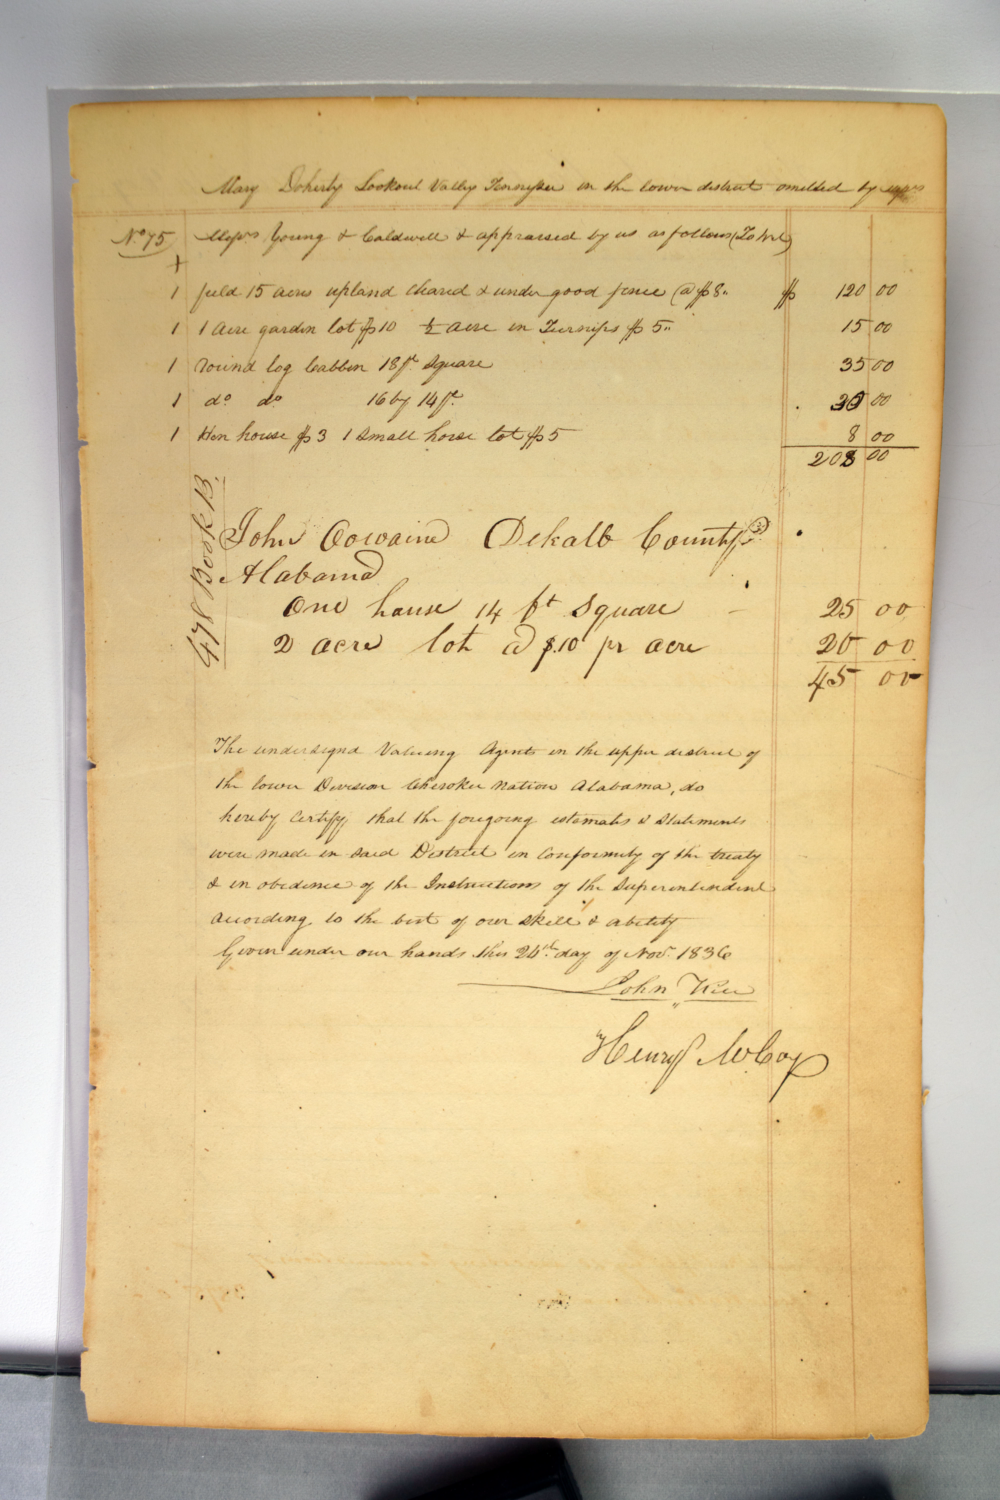 Mary Doherty Lookout Valley Tennessee in the lower district omitted by
No 75 Messrs Young & Caldwell & appraised by us as follows (To Wit)
1 field 15 acres upland cleared & under good fence @ $8,, $ 120 00
1 1 acre garden lot $10 ½ acre in Turnips $5,, 15 00
1 round log Cabbin 18ft square 35 00
1 do do 16 by 14ft. 30 00
1 Hen house $3 1 small horse lot $5 8 00
208 00
478 Book B.
John Cowaine Dekalb County
Alabama
One house 14 ft Square 25 00
2 acre lot @ $10 pr acre 20 00
45 00
The undersignd Valueing Agents in the upper district of
the lower Division Cherokee Nation Alabama, do
hereby Certify that the foregoing estemates & Statements
were made in said District in Conformity of the treaty
& in obedience of the Instructions of the Superintendent
according to the best of our Skill & ability
Given under our hands this 24th day of Novr 1836
John
Henry McCoy